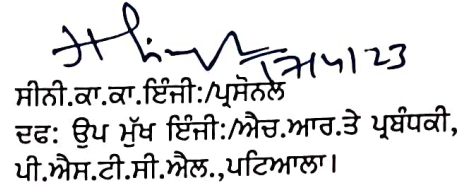 ਸੀਨੀ.ਕਾ.ਕਾ.ਇੰਜੀ:/ਪ੍ਰਸੋਨਲ
ਦਫ: ਉਪ ਮੁੱਖ ਇੰਜੀ:/ਐਚ.ਆਰ.ਤੇ ਪ੍ਰਬੰਧਕੀ,
ਪੀ.ਐਸ.ਟੀ.ਸੀ.ਐਲ.,ਪਟਿਆਲਾ।